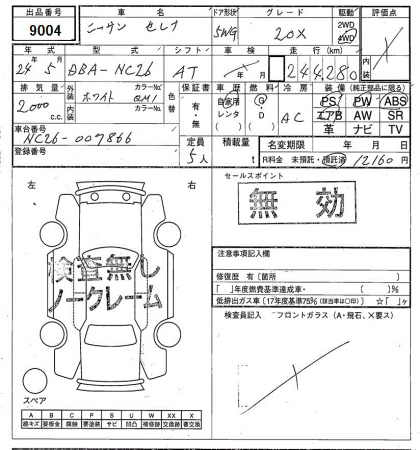 出品番号 車名 ドア形状 グレード 駆動 評価点
9004 ニッサン セレナ 5WG 20X 2WD 4WD
年式 型式 シフト 車検 走行(km) 内装
24年5月 DBA-NC26 AT 年 月 24,280
排気量 外装 カラーNo. 色替 保証書 車歴 燃料 冷房 装備(純正部品に限る)
2000 c.c. ホワイト QM1 有・無 自家用 レンタ ( ) G・D ( ) AC PS PW ABS
内装 カラーNo. エアB AW SR
革 ナビ TV
車台番号 NC26-007866 定員 5人 積載量 t 名変期限 年 月 日
登録番号 R料金 未預託・預託済 12160円
左 右 セールスポイント
無効
検査無し
ノークレーム
注意事項記入欄
修復歴 有(箇所 )
「 」年度燃費基準達成車・
低排出ガス車(17年度基準75%(該当車は○印)) ☆「 」ヶ
検査員記入 フロントガラス(A・飛石、×要ス)
スペア
A B C P S U W XX X
線キズ 要板金 腐蝕 要塗装 サビ 凹凸 補修跡 交換跡 要交換